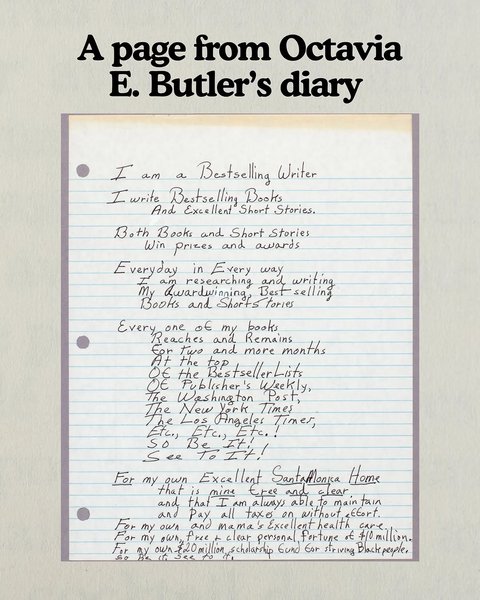 A page from Octavia
E. Butler's diary
I am a Bestselling Writer
I write Bestselling Books
And Excellent Short Stories.
Both Books and Short Stories
Win prizes and awards
Everyday in Every way
I am researching and writing
My Awardwinning, Best selling
Books and Short Stories
Every one of my books
Reaches and Remains
For two and more months
At the top
Of the Bestseller Lists
Of Publisher's Weekly,
The Washington Post,
The New York Times
The Los Angeles Times,
Etc., Etc., Etc.!
So Be It!
See To It!
For my own Excellent Santa Monica Home
that is mine free and clear.
and that I am always able to maintain
and pay all taxes on without effort.
For my own and mama's Excellent health care.
For my own, free + clear personal fortune of $10 million.
For my own $20 million, scholarship fund for striving Black people.
So be it, see to it.